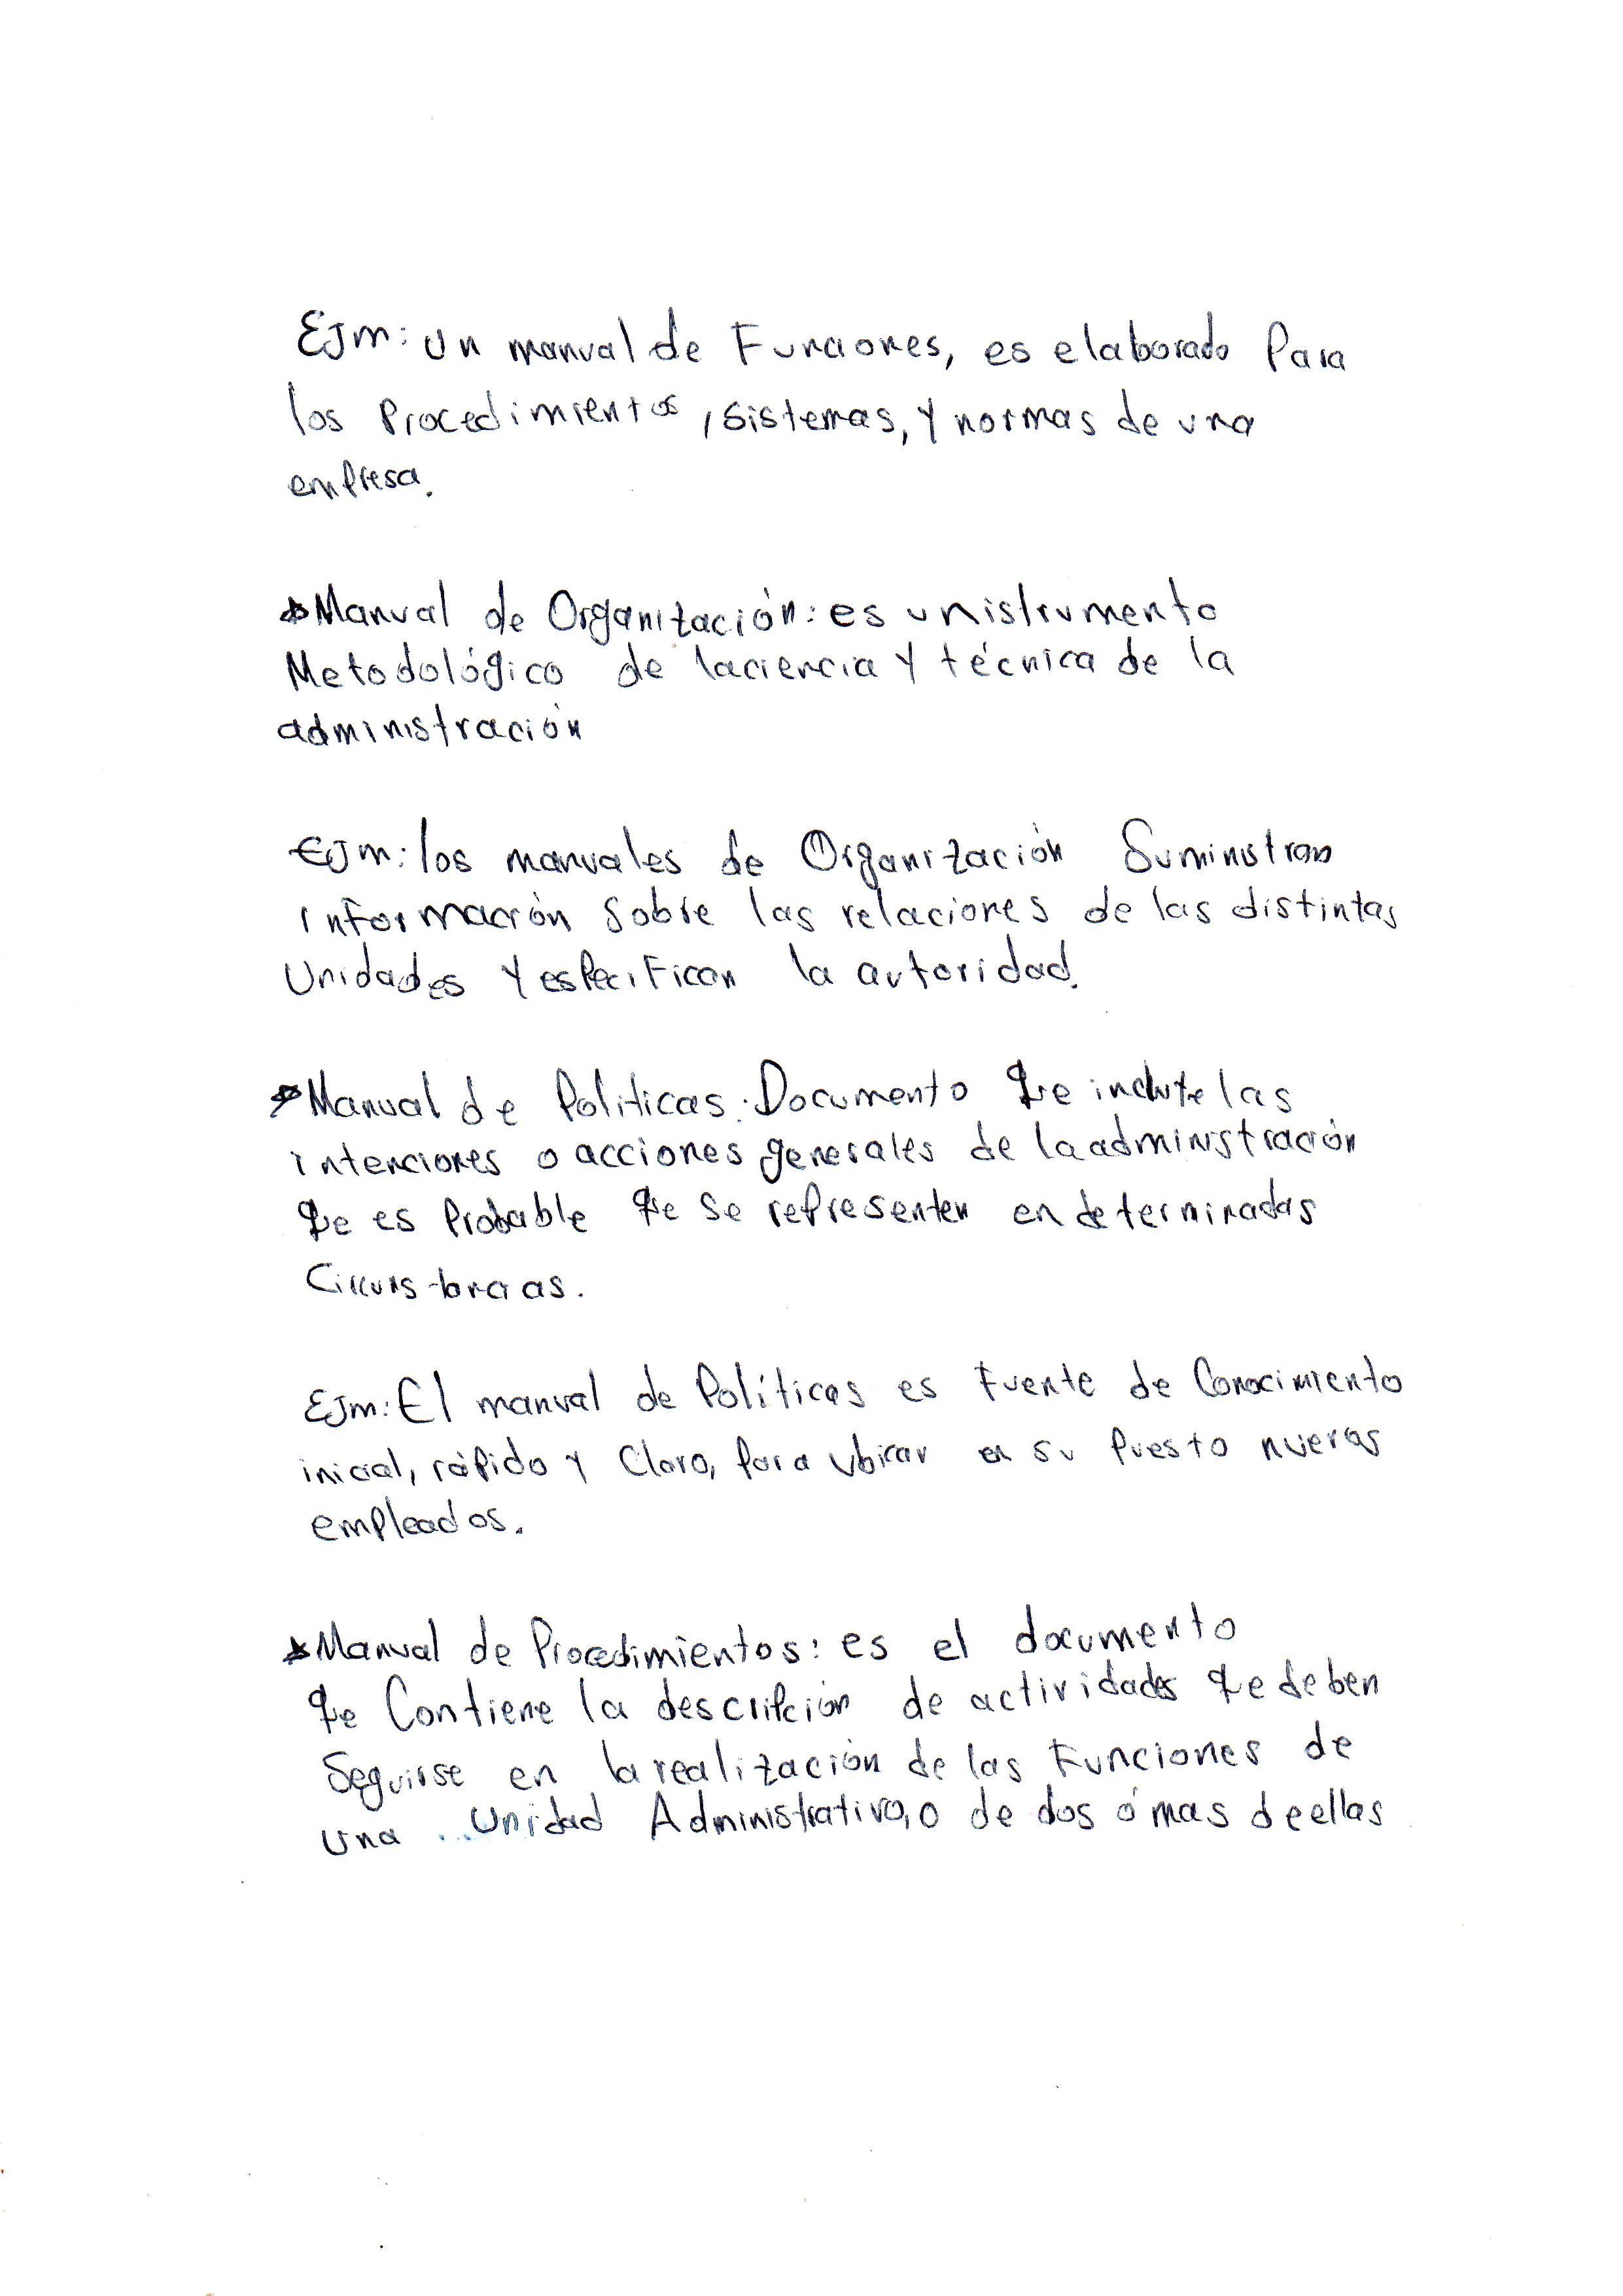 EJm: Un manual de Funciones, es elaborado Para
los Procedimientos, sistemas, y normas de una
empresa.
*Manual de Organización: es un istrumento
Metodológico de la ciencia y técnica de la
administración
EJm: los manuales de Organización Suministran
información sobre las relaciones de las distintas
Unidades y especifican la autoridad.
*Manual de Politicas: Documento que incluye las
intenciones o acciones generales de la administración
que es Probable que se representen en determinadas
Circunstancias.
EJm: El manual de Políticas es fuente de Conocimiento
inicial, rápido y Claro, para ubicar en su Puesto nuevos
empleados.
*Manual de Procedimientos: es el documento
que Contiene la descripción de actividades que deben
Seguirse en la realización de las Funciones de
una Unidad Administrativa, o de dos ó mas de ellas